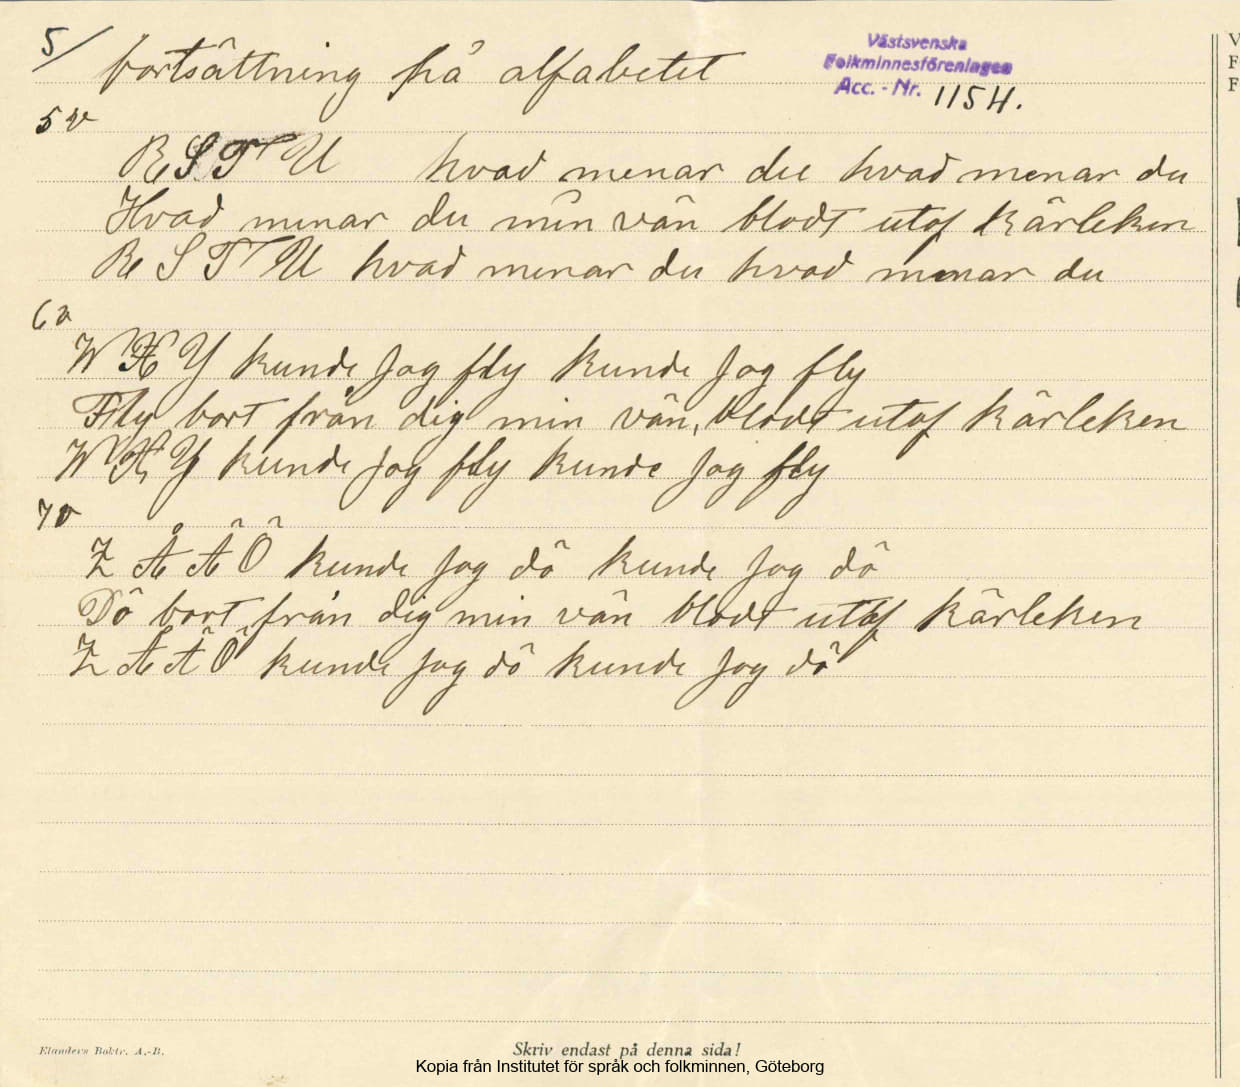 5/ fortsättning på alfabetet
Västsvenska
Folkminnesföreningen
Acc. - Nr. 1154.
5 v
R S T U hvad menar du hvad menar du
Hvad menar du min vän blodt utaf kärleken
R S T U hvad menar du hvad menar du
6 v
W X Y kunde jag fly kunde jag fly
Fly bort från dig min vän, blodt utaf kärleken
W X Y kunde jag fly kunde jag fly
7 v
Z Å Ä Ö kunde jag dö kunde jag dö
Dö bort från dig min vän blodt utaf kärleken
Z Å Ä Ö kunde jag dö kunde jag dö
Elanders Boktr. A.-B.
Skriv endast på denna sida!
Kopia från Institutet för språk och folkminnen, Göteborg